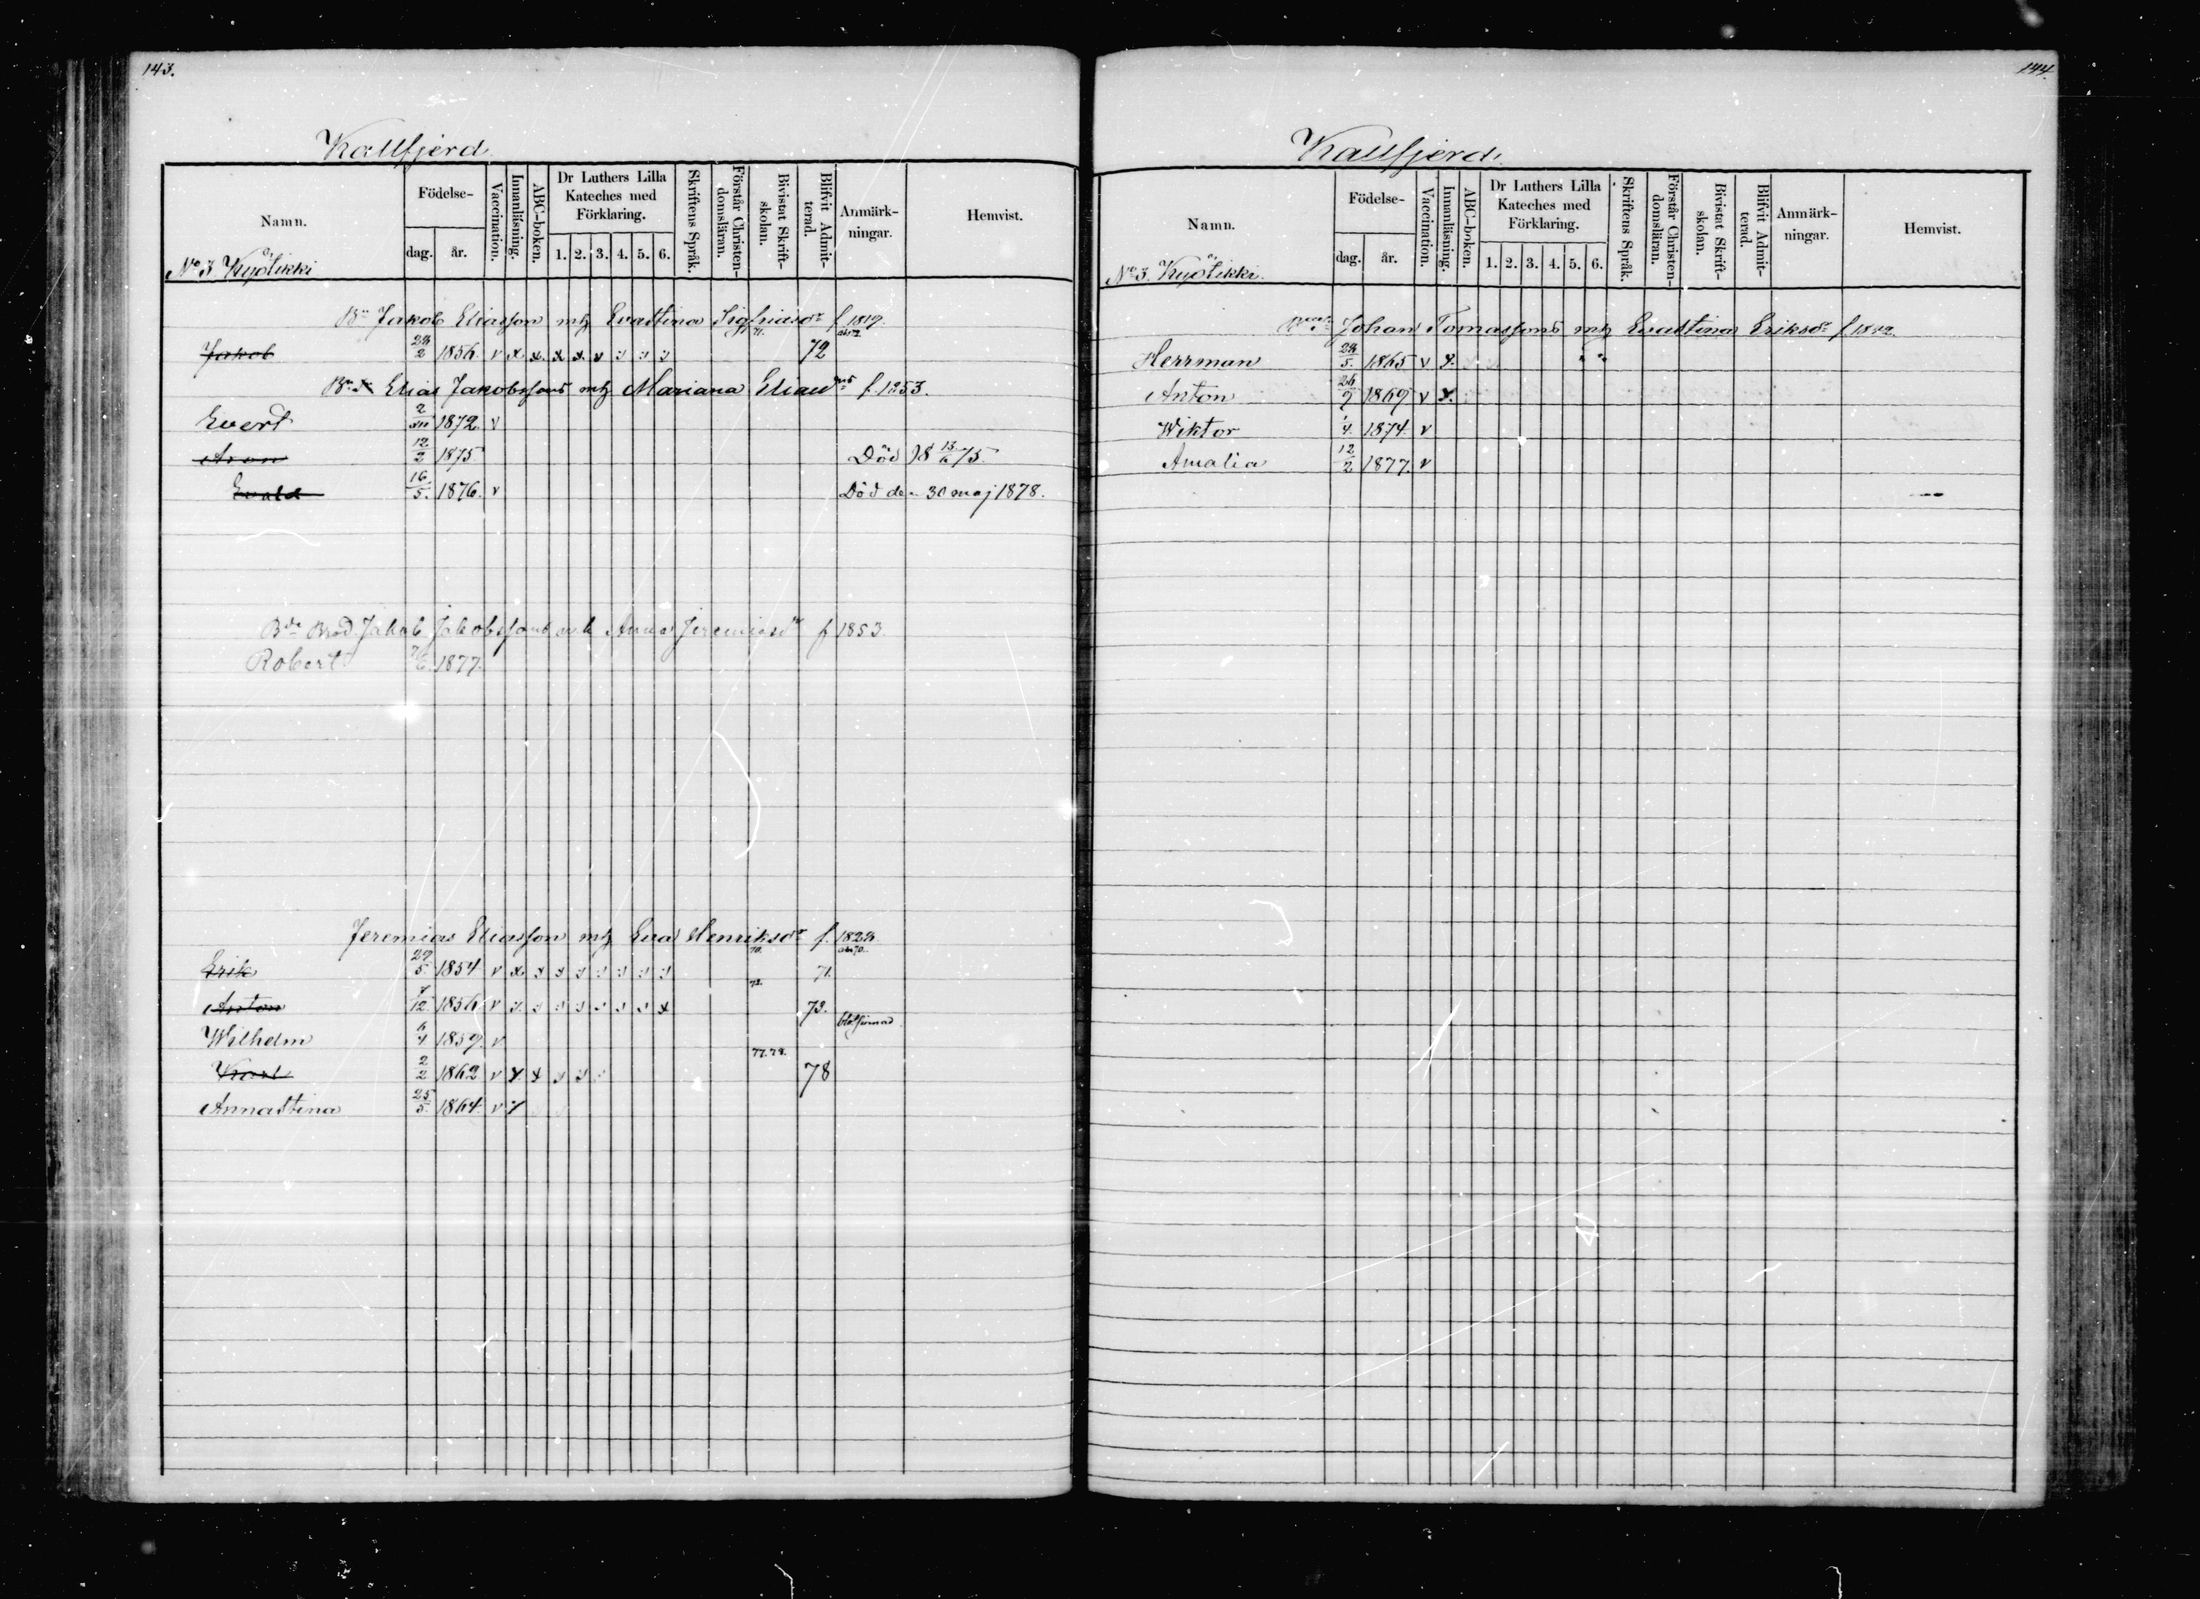 143.
Kallfjerd
Namn.
Födelse-
dag.
år.
Vaccination.
Innanläsning.
ABC-boken.
Dr Luthers Lilla
Kateches med
Förklaring.
1. 2. 3. 4. 5. 6.
Skriftens Språk.
Förstår Christen-
domsläran.
Bivistat Skrift-
skolan.
Blifvit Admit-
terad.
Anmärk-
ningar.
Hemvist.
No 3
Jakob Eliasson mh Evastina f 1819.
Jakob 1856. v x x x x v 72
Elias Jakobssons mh Mariana f. 1853.
Evert 2 1872. v
Aron 12/2 1875 Död 75.
Evald 16/5. 1876. v Död den 30 maj 1878.
Jakob Jakobssons mh Anna Jeremiasdr f 1853.
Robert 1877.
Jeremias Eliasson mh Eva Henriksdr f.
70.
Erik 5. 1854 v x 71.
72.
Anton 12 1856 v 73.
Wilhelm 1859. v
77.78.
Karl 2/2 1862 v x x 78
Annastina 25/5. 1864. v
144.
Kallfjerd.
Namn.
Födelse-
dag.
år.
Vaccination.
Innanläsning.
ABC-boken.
Dr Luthers Lilla
Kateches med
Förklaring.
1. 2. 3. 4. 5. 6.
Skriftens Språk.
Förstår Christen-
domsläran.
Bivistat Skrift-
skolan.
Blifvit Admit-
terad.
Anmärk-
ningar.
Hemvist.
No 3.
Johan Tomassons mh Evastina Eriksdr f.
Herrman 1865 v x.
Anton 1869 v x.
Wiktor 1874. v
Amalia 12/2 1877. v